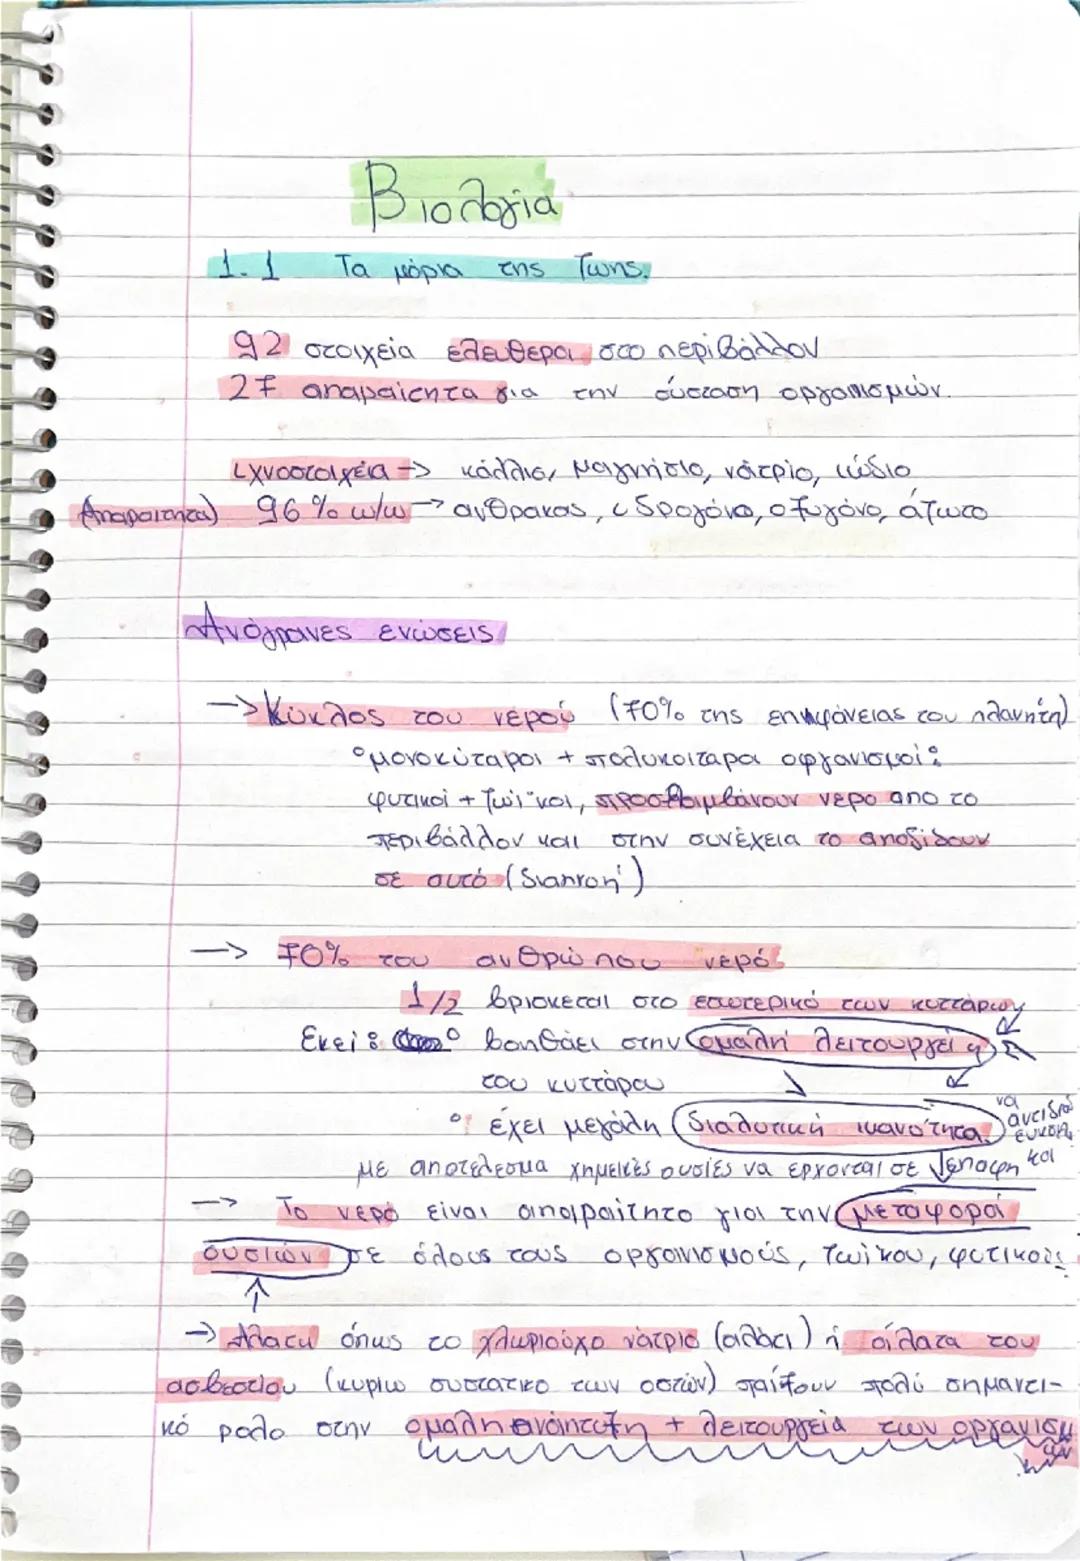 Βιολογία
1.1 Τα μόρια της ζωης.
92 στοιχεία ελευθερα στο περιβάλλον
27 απαραίτητα για την σύσταση οργανισμών.
ιχνοστοιχεία → κάλλιο, Μαγνήσιο, νάτριο, ιώδιο
Απαραιτητα) 96% w/w → ανθρακας, υδρογόνο, οξυγόνο, άζωτο
Ανόργανες ενώσεις
→ Κύκλος του νερού (70% της επιφάνειας του πλανήτη)
°μονοκύταροι + πολυκοιταροι οργανισμοί:
φυτικοί + ζωϊκοι, προσλαμβάνουν νερο απο το
περιβάλλον και στην συνέχεια το αποδίδουν
σε αυτό (διαπνοή)
→ 70% του ανθρώπου νερό
1/2 βρισκεται στο εσωτερικό των κυττάρων
Εκεί: ° βοηθάει στην ομαλή λειτουργεία
του κυττάρου
° έχει μεγάλη διαλυτική ικανότητα
να αντιδρά
ευκολα
και
με αποτέλεσμα χημικές ουσίες να ερχονται σε επαφη
→ Το νερό είναι απαραίτητο για την μεταφορά
ουσιών σε όλους τους οργανισμούς, ζωικου, φυτικούς
→ Αλατα όπως το χλωριούχο νάτριο (αλάτι) ή άλατα του
ασβεστίου (κυριω συστατικο των οστών) παίζουν πολύ σημαντι-
κό ρολο στην ομαλη ανάπτυξη + λειτουργεία των οργανισμ
ών